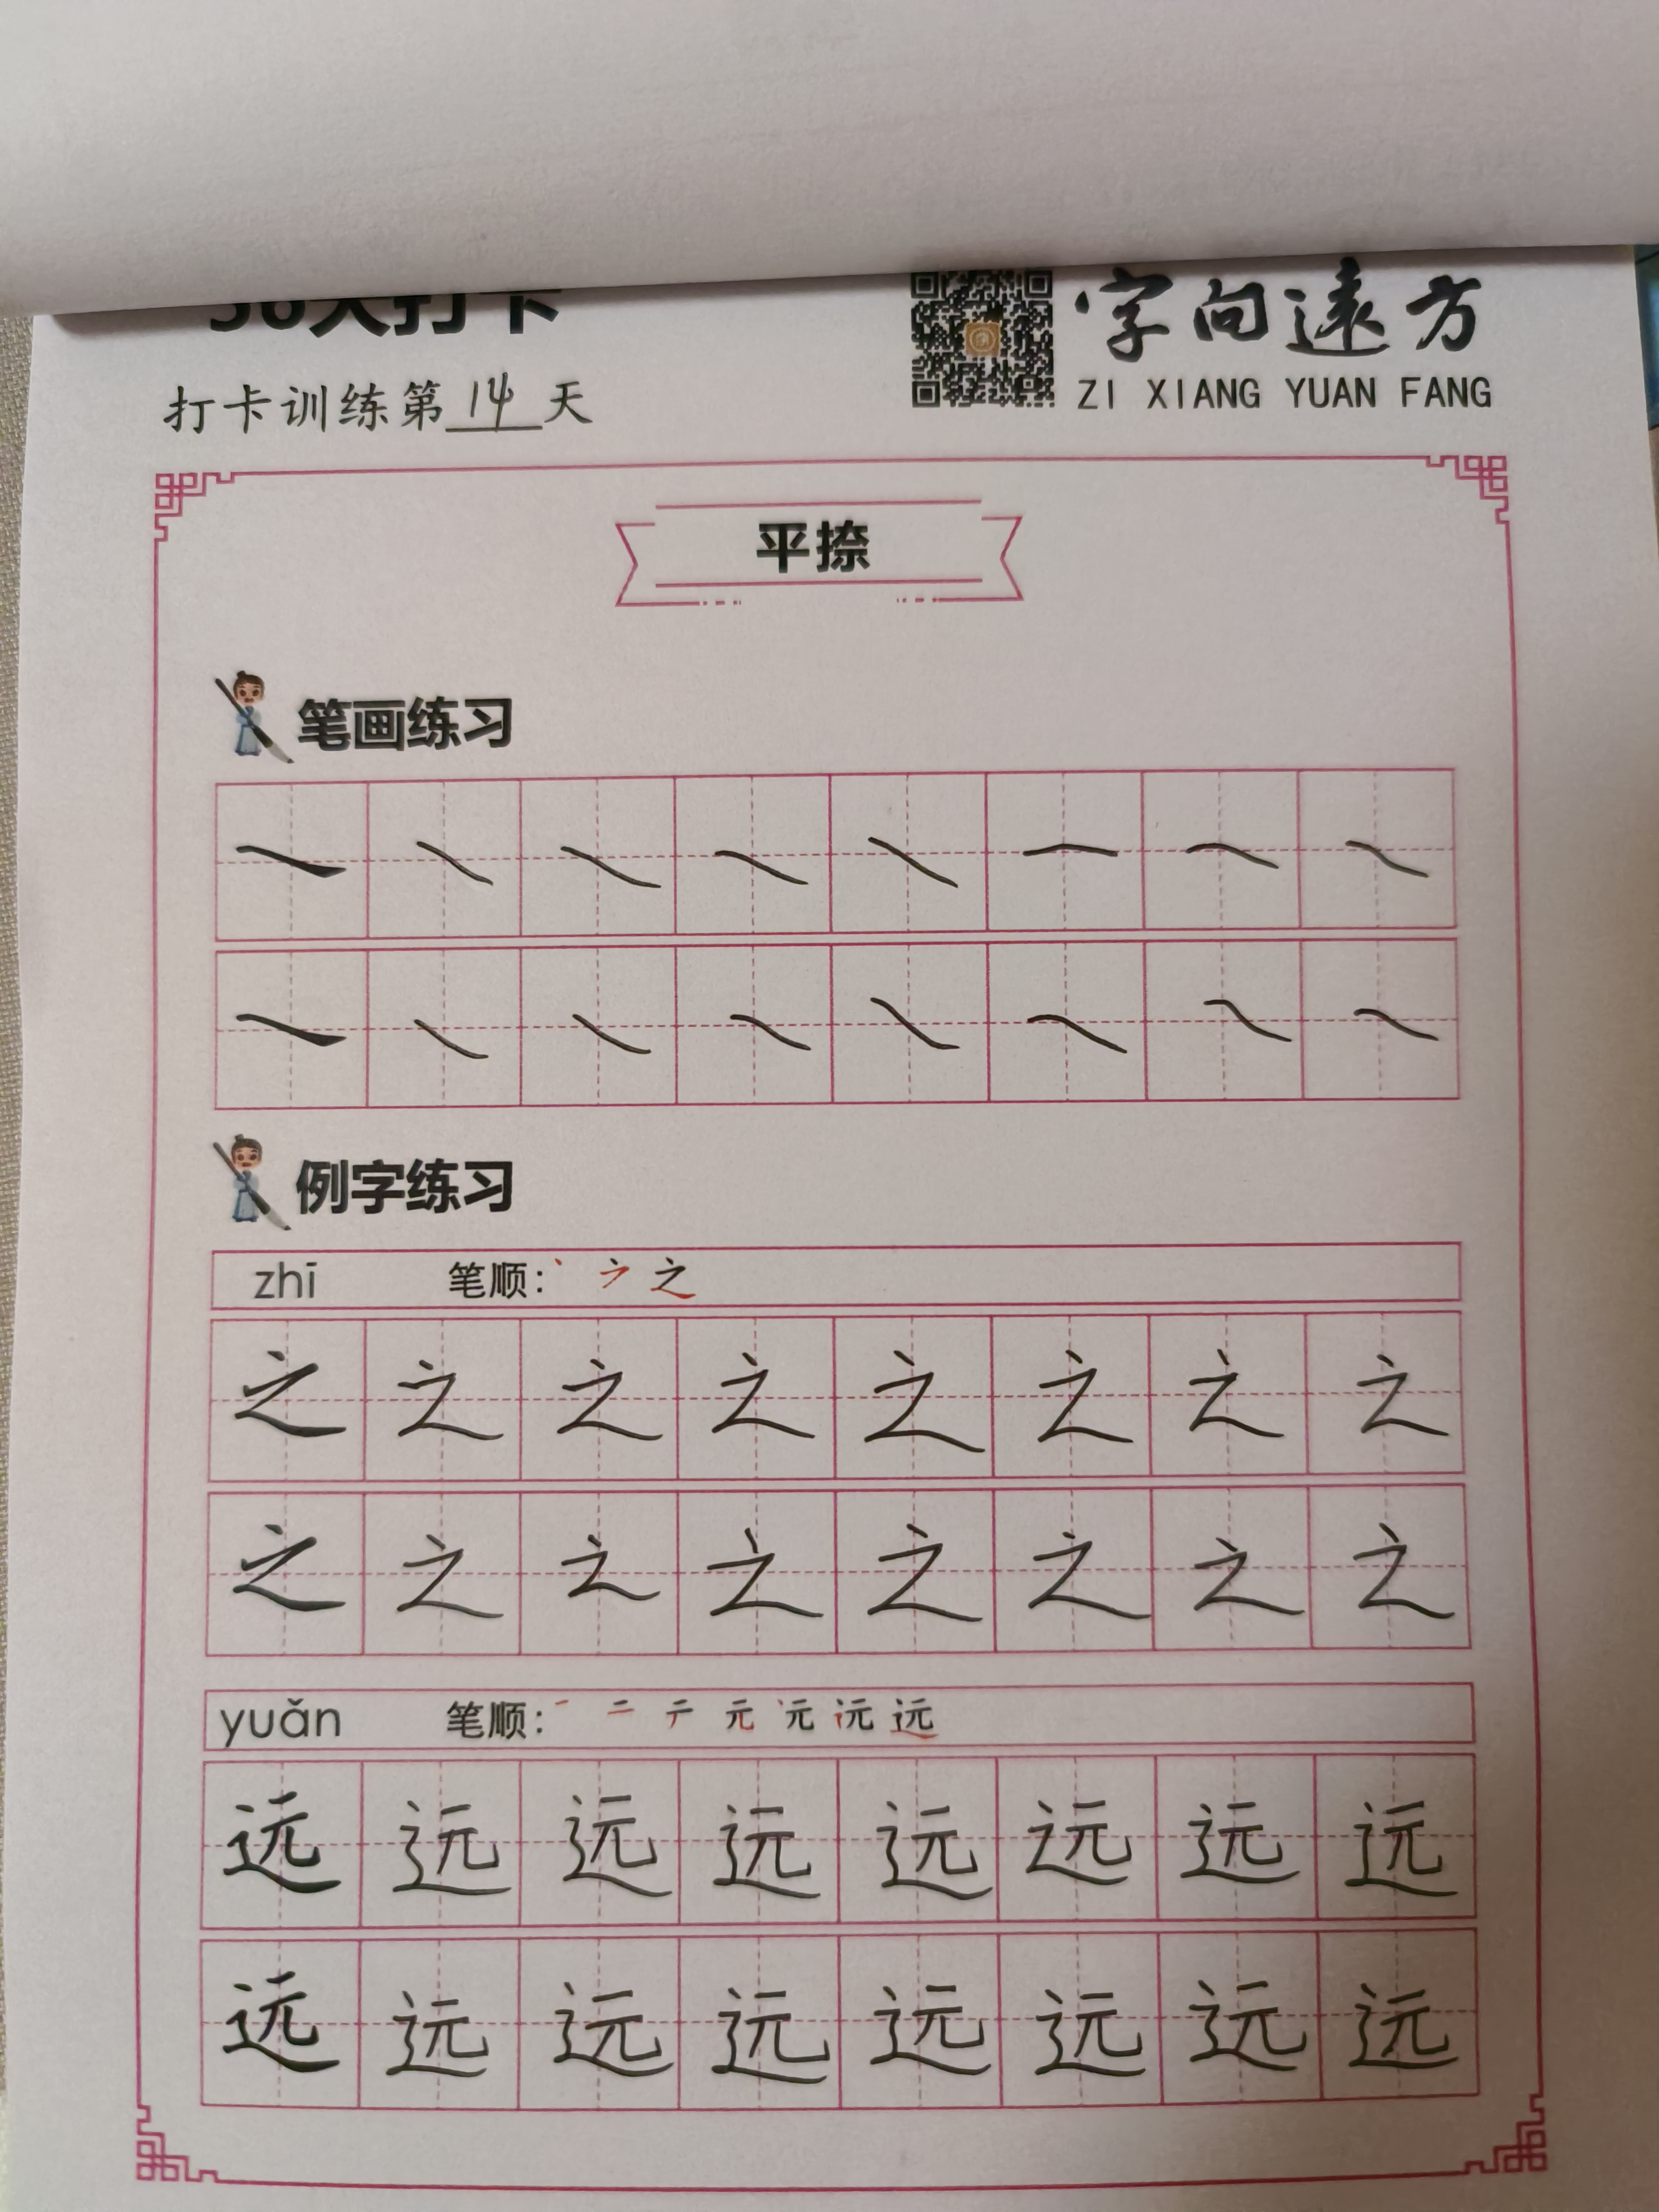 天打卡
字向遠方
ZI XIANG YUAN FANG
打卡训练第14天
平捺
笔画练习
例字练习
zhī 笔顺: 之
之 之 之 之 之 之 之 之
之 之 之 之 之 之 之 之
yuǎn 笔顺: 一 二 テ 元 远
远 远 远 远 远 远 远 远
远 远 远 远 远 远 远 远